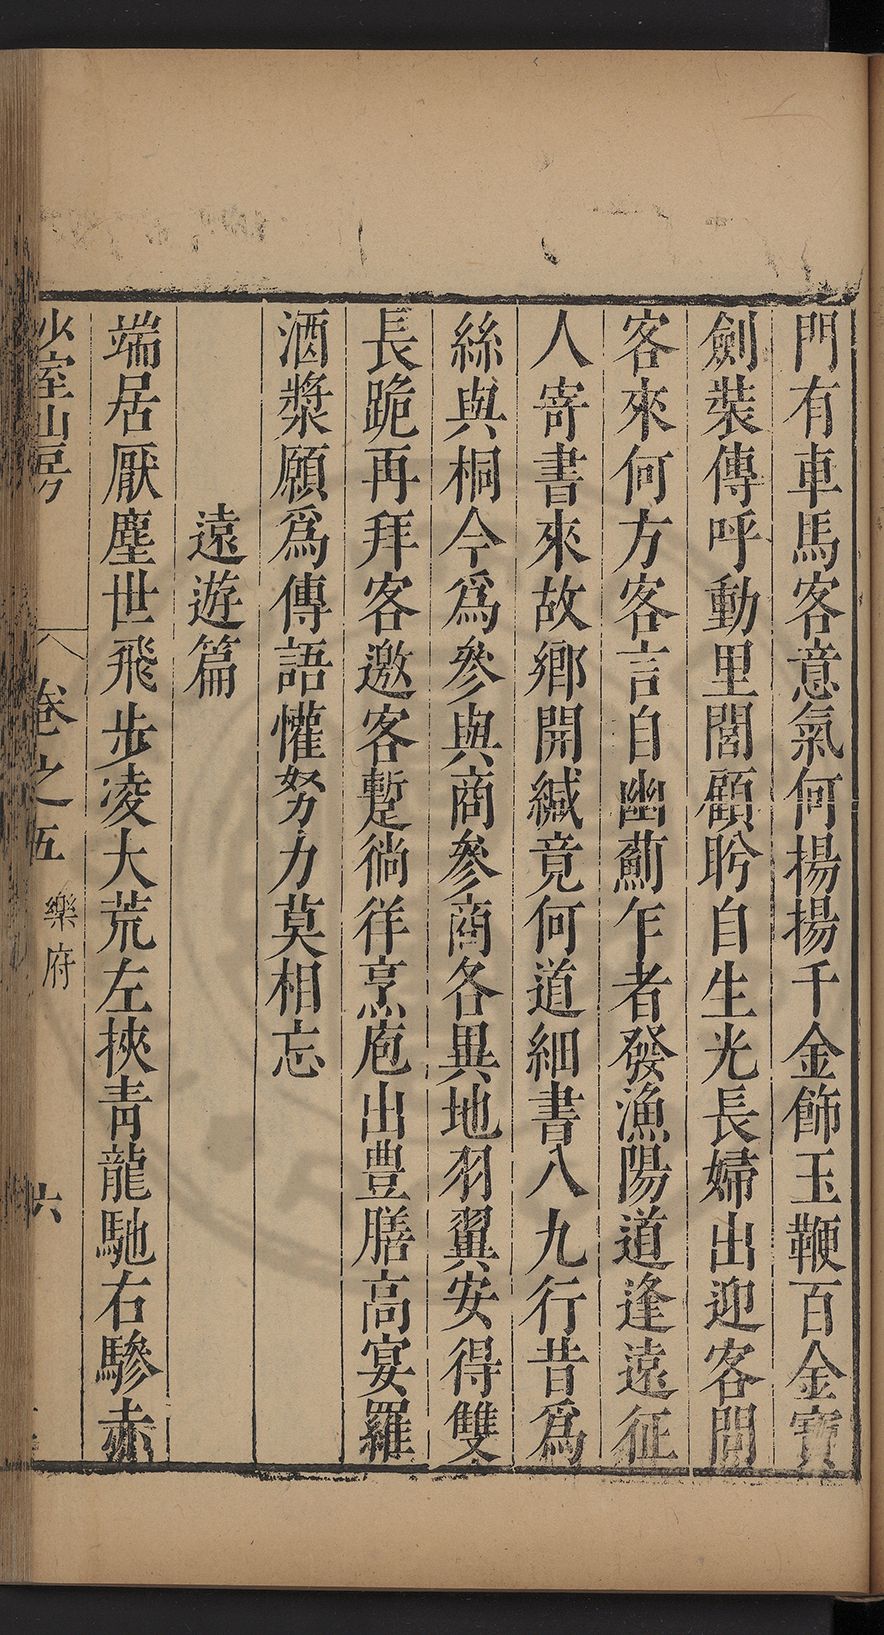 門有車馬客意氣何揚揚千金飾玉鞭百金寶
劍裝傳呼動里閭顧盻自生光長婦出迎客問
客來何方客言自幽薊乍者發漁陽道逢遠征
人寄書來故鄉開緘竟何道細書八九行昔爲
絲與桐今爲參與商參商各異地羽翼安得雙
長跪再拜客邀客蹔徜徉烹庖出豊膳高宴羅
酒漿願爲傳語懽努力莫相忘
遠遊篇
端居厭塵世飛步凌大荒左挾靑龍馳右驂赤
少室山房
卷之五
樂府
六